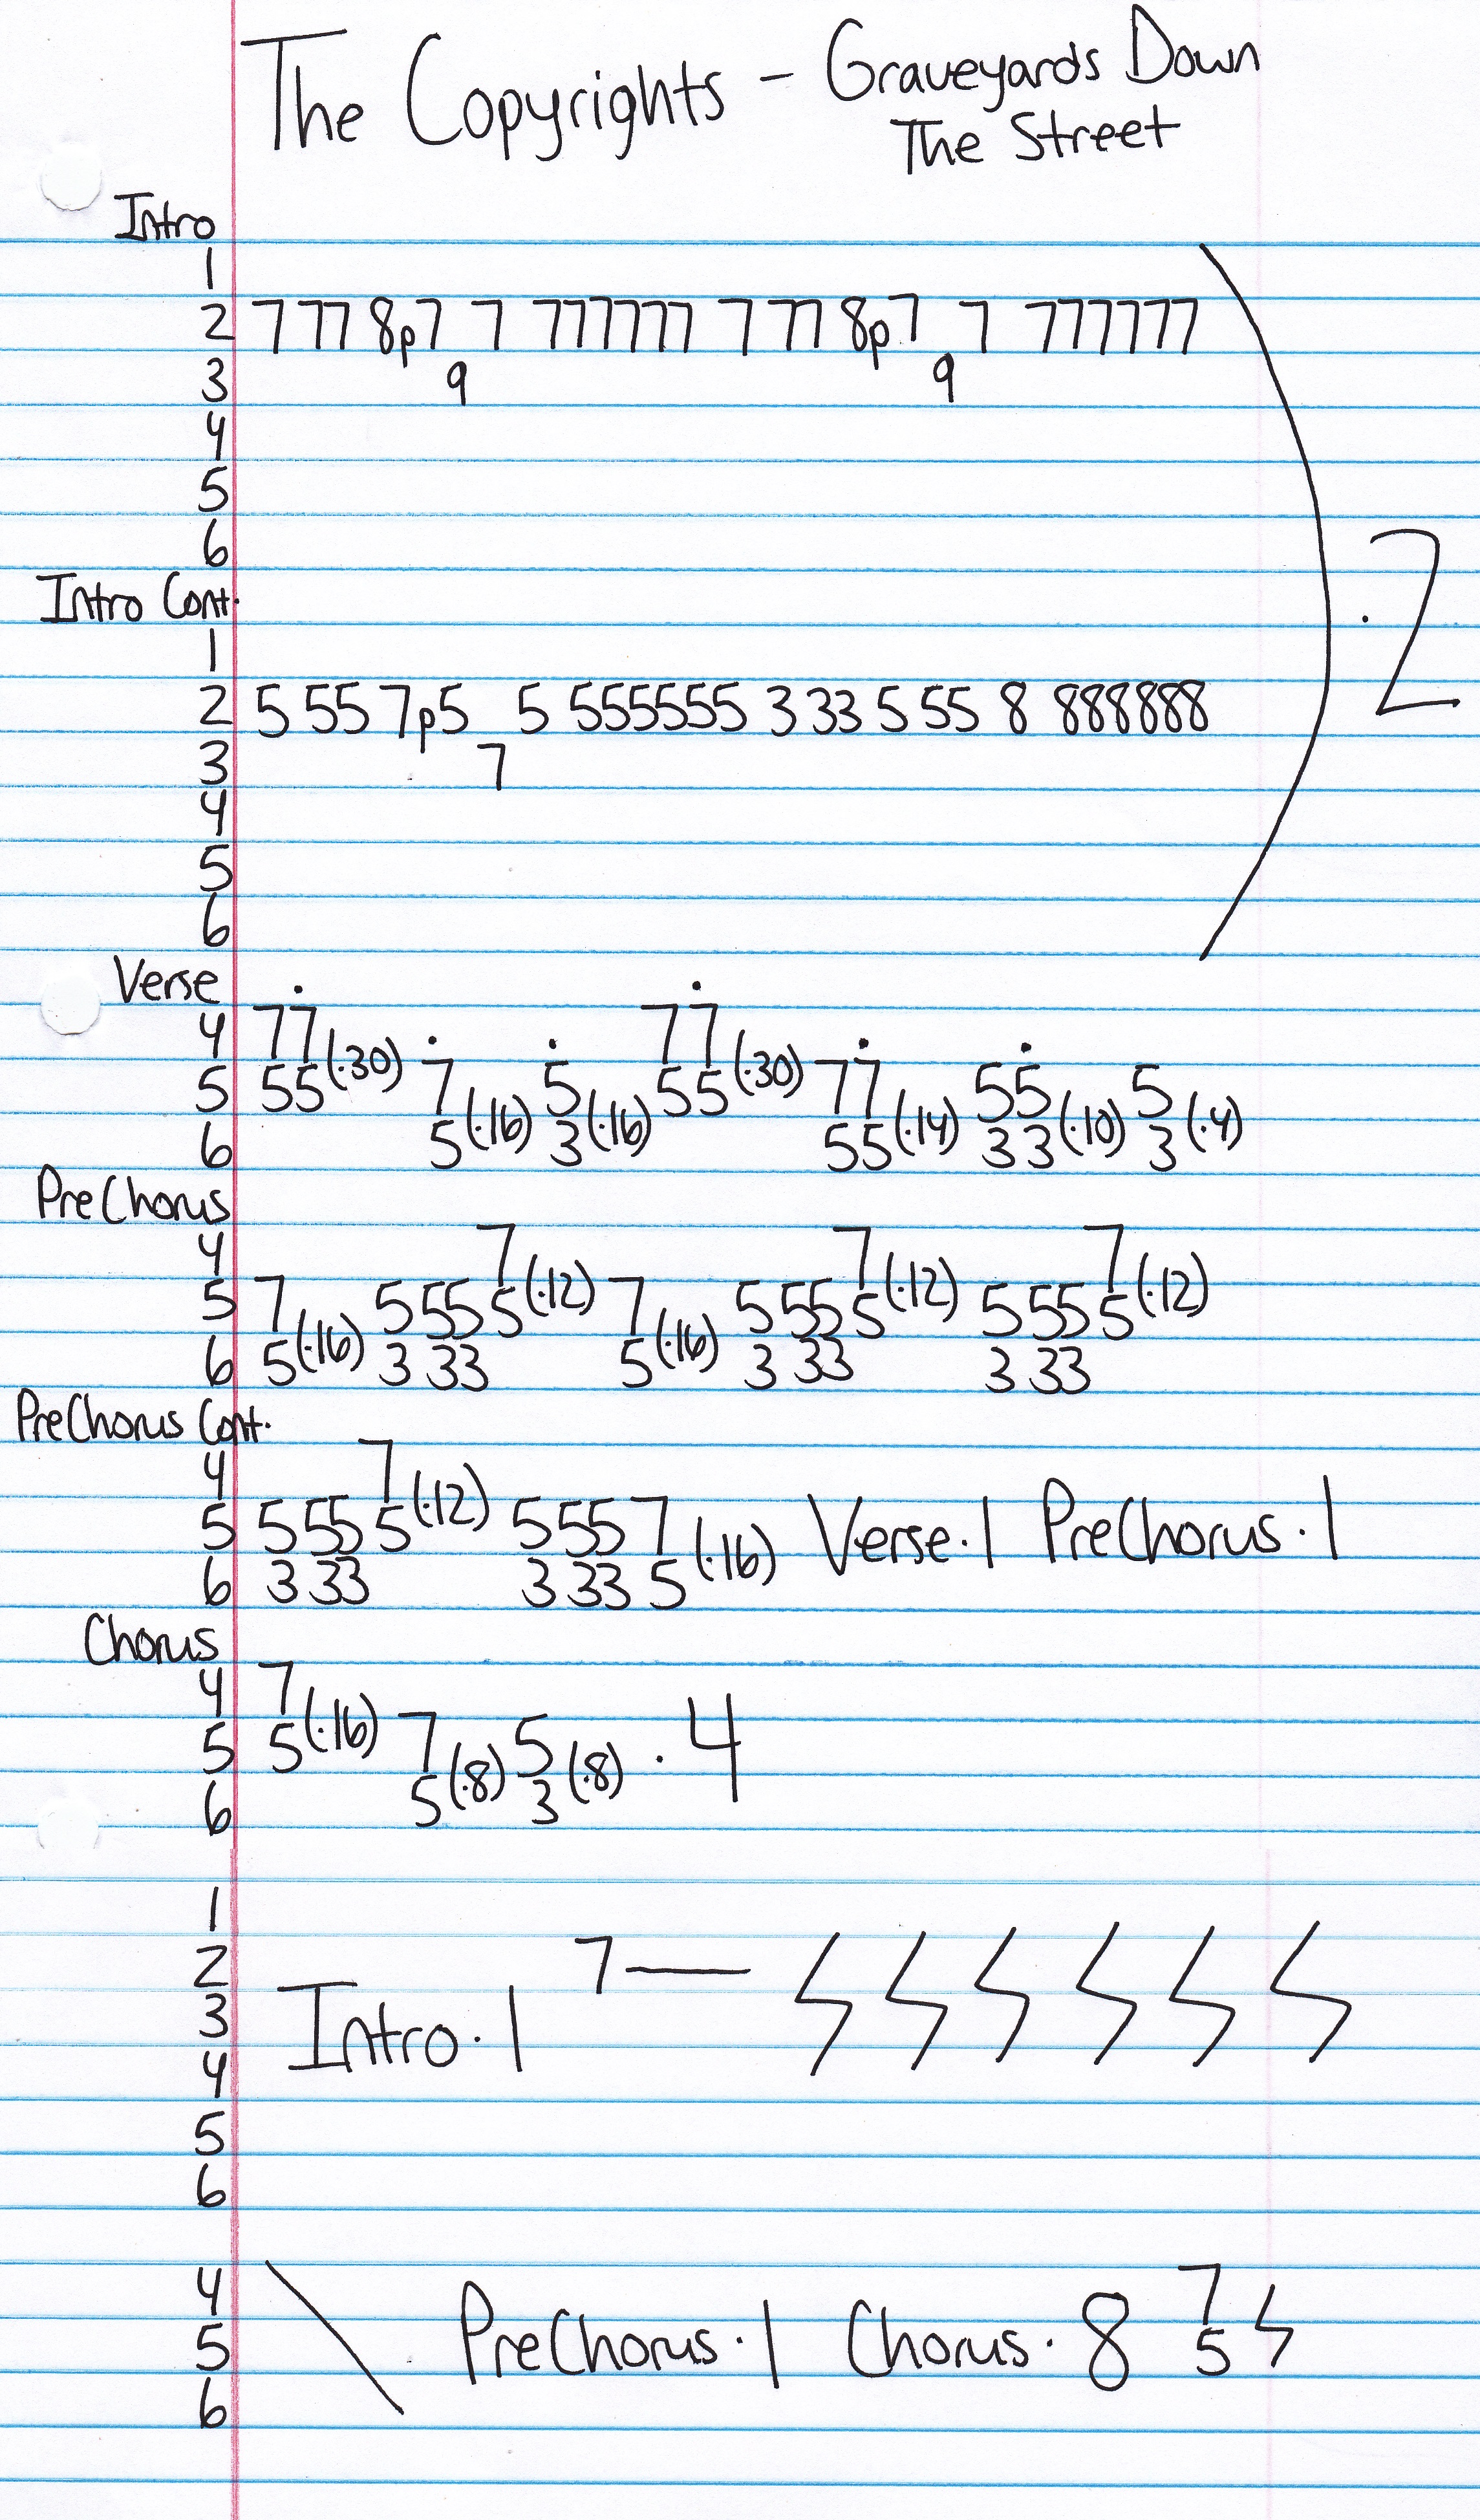 The Copyrights - Graveyards Down
The Street
Intro
1
2 7 77 8p7 7 777777 7 77 8p7 7 777777
3 9 9
4
5
6
Intro Cont.
1
2 5 55 7p5 5 555555 3 33 5 55 8 888888
3 7
4
5
6
·2
Verse
4 77 77
5 55(·30) 7 5 55(·30) 77 55 5
6 5(·16) 3(·16) 55(·14) 33(·10) 3(·4)
PreChorus
4 7 7 7
5 7 5 55 5(·12) 7 5 55 5(·12) 5 55 5(·12)
6 5(·16) 3 33 5(·16) 3 33 3 33
PreChorus Cont.
4 7
5 5 55 5(·12) 5 55 7 Verse·1 PreChorus·1
6 3 33 3 33 5(·16)
Chorus
4 7
5 5(·16) 7 5 ·4
6 5(·8) 3(·8)
1
2 7—
3 Intro·1
4
5
6
4 7
5 PreChorus·1 Chorus·8 5
6